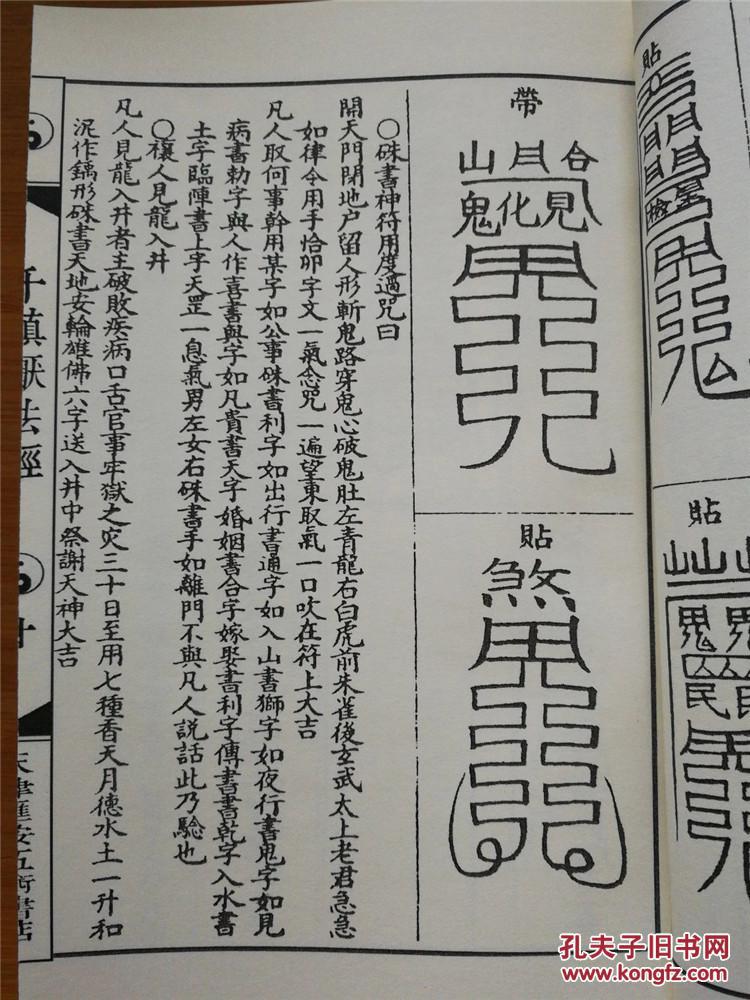 貼
貼
帶
合月山
見化鬼
貼
煞
○硃書神符用度過咒曰
開天門閉地户留人形斬鬼路穿鬼心破鬼肚左青龍右白虎前朱雀後玄武太上老君急急
如律令用手恰卯字文一氣念咒一遍望東取氣一口吹在符上大吉
凡人取何事幹用某字如公事硃書利字如出行書通字如入山書獅字如夜行書鬼字如見
病書勅字與人作喜書與字如凡貴書天字婚姻書合字嫁娶書利字傳書書乾字入水書
土字臨陣書上字天罡一息氣男左女右硃書手如離門不與凡人説話此乃驗也
○禳人見龍入井
凡人見龍入井者主破敗疾病口舌官事牢獄之灾三十日至用七種香天月德水土一升和
泥作鷂形硃書天地安輪雄佛六字送入井中祭謝天神大吉
鎮厭法經
天津匯安五術書店
孔夫子旧书网
www.kongfz.com